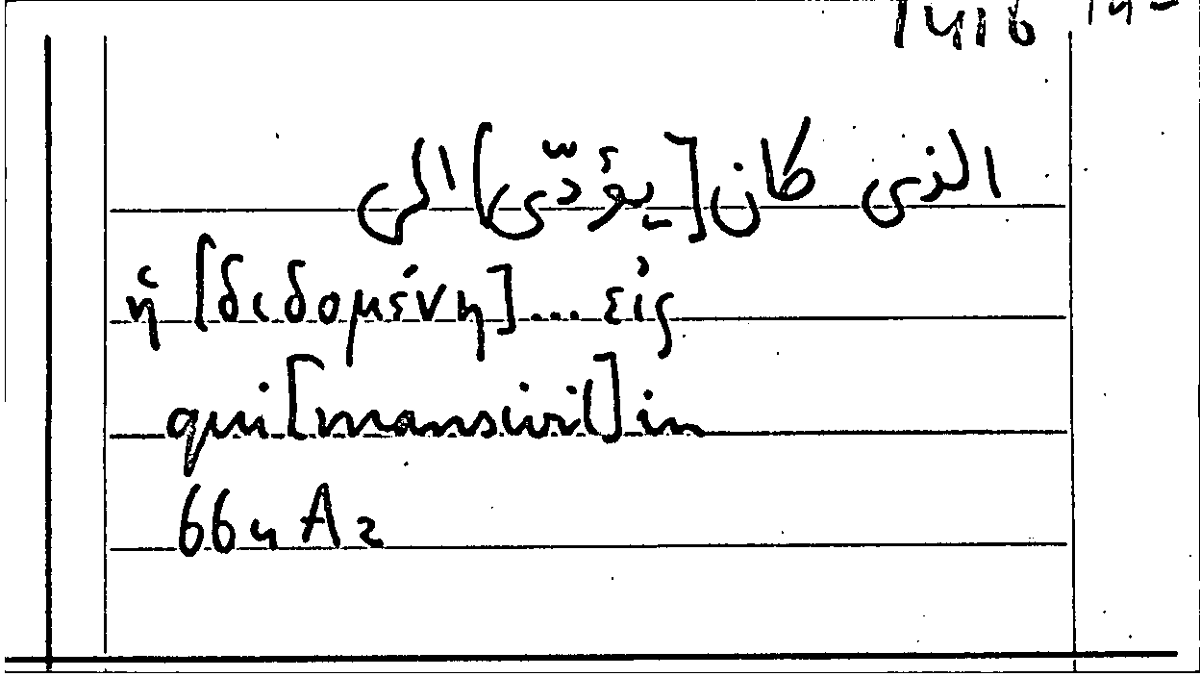 الذى كان [يؤدّى] الى
ἡ [διδομένη]... εἰς
qui [mansivit] in
664 A 2